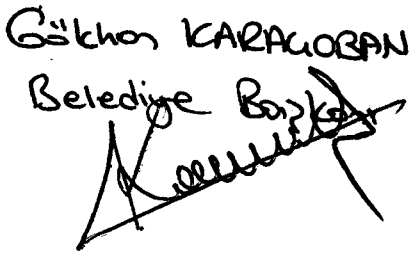 Gökhan KARAÇOBAN
Belediye Başkanı